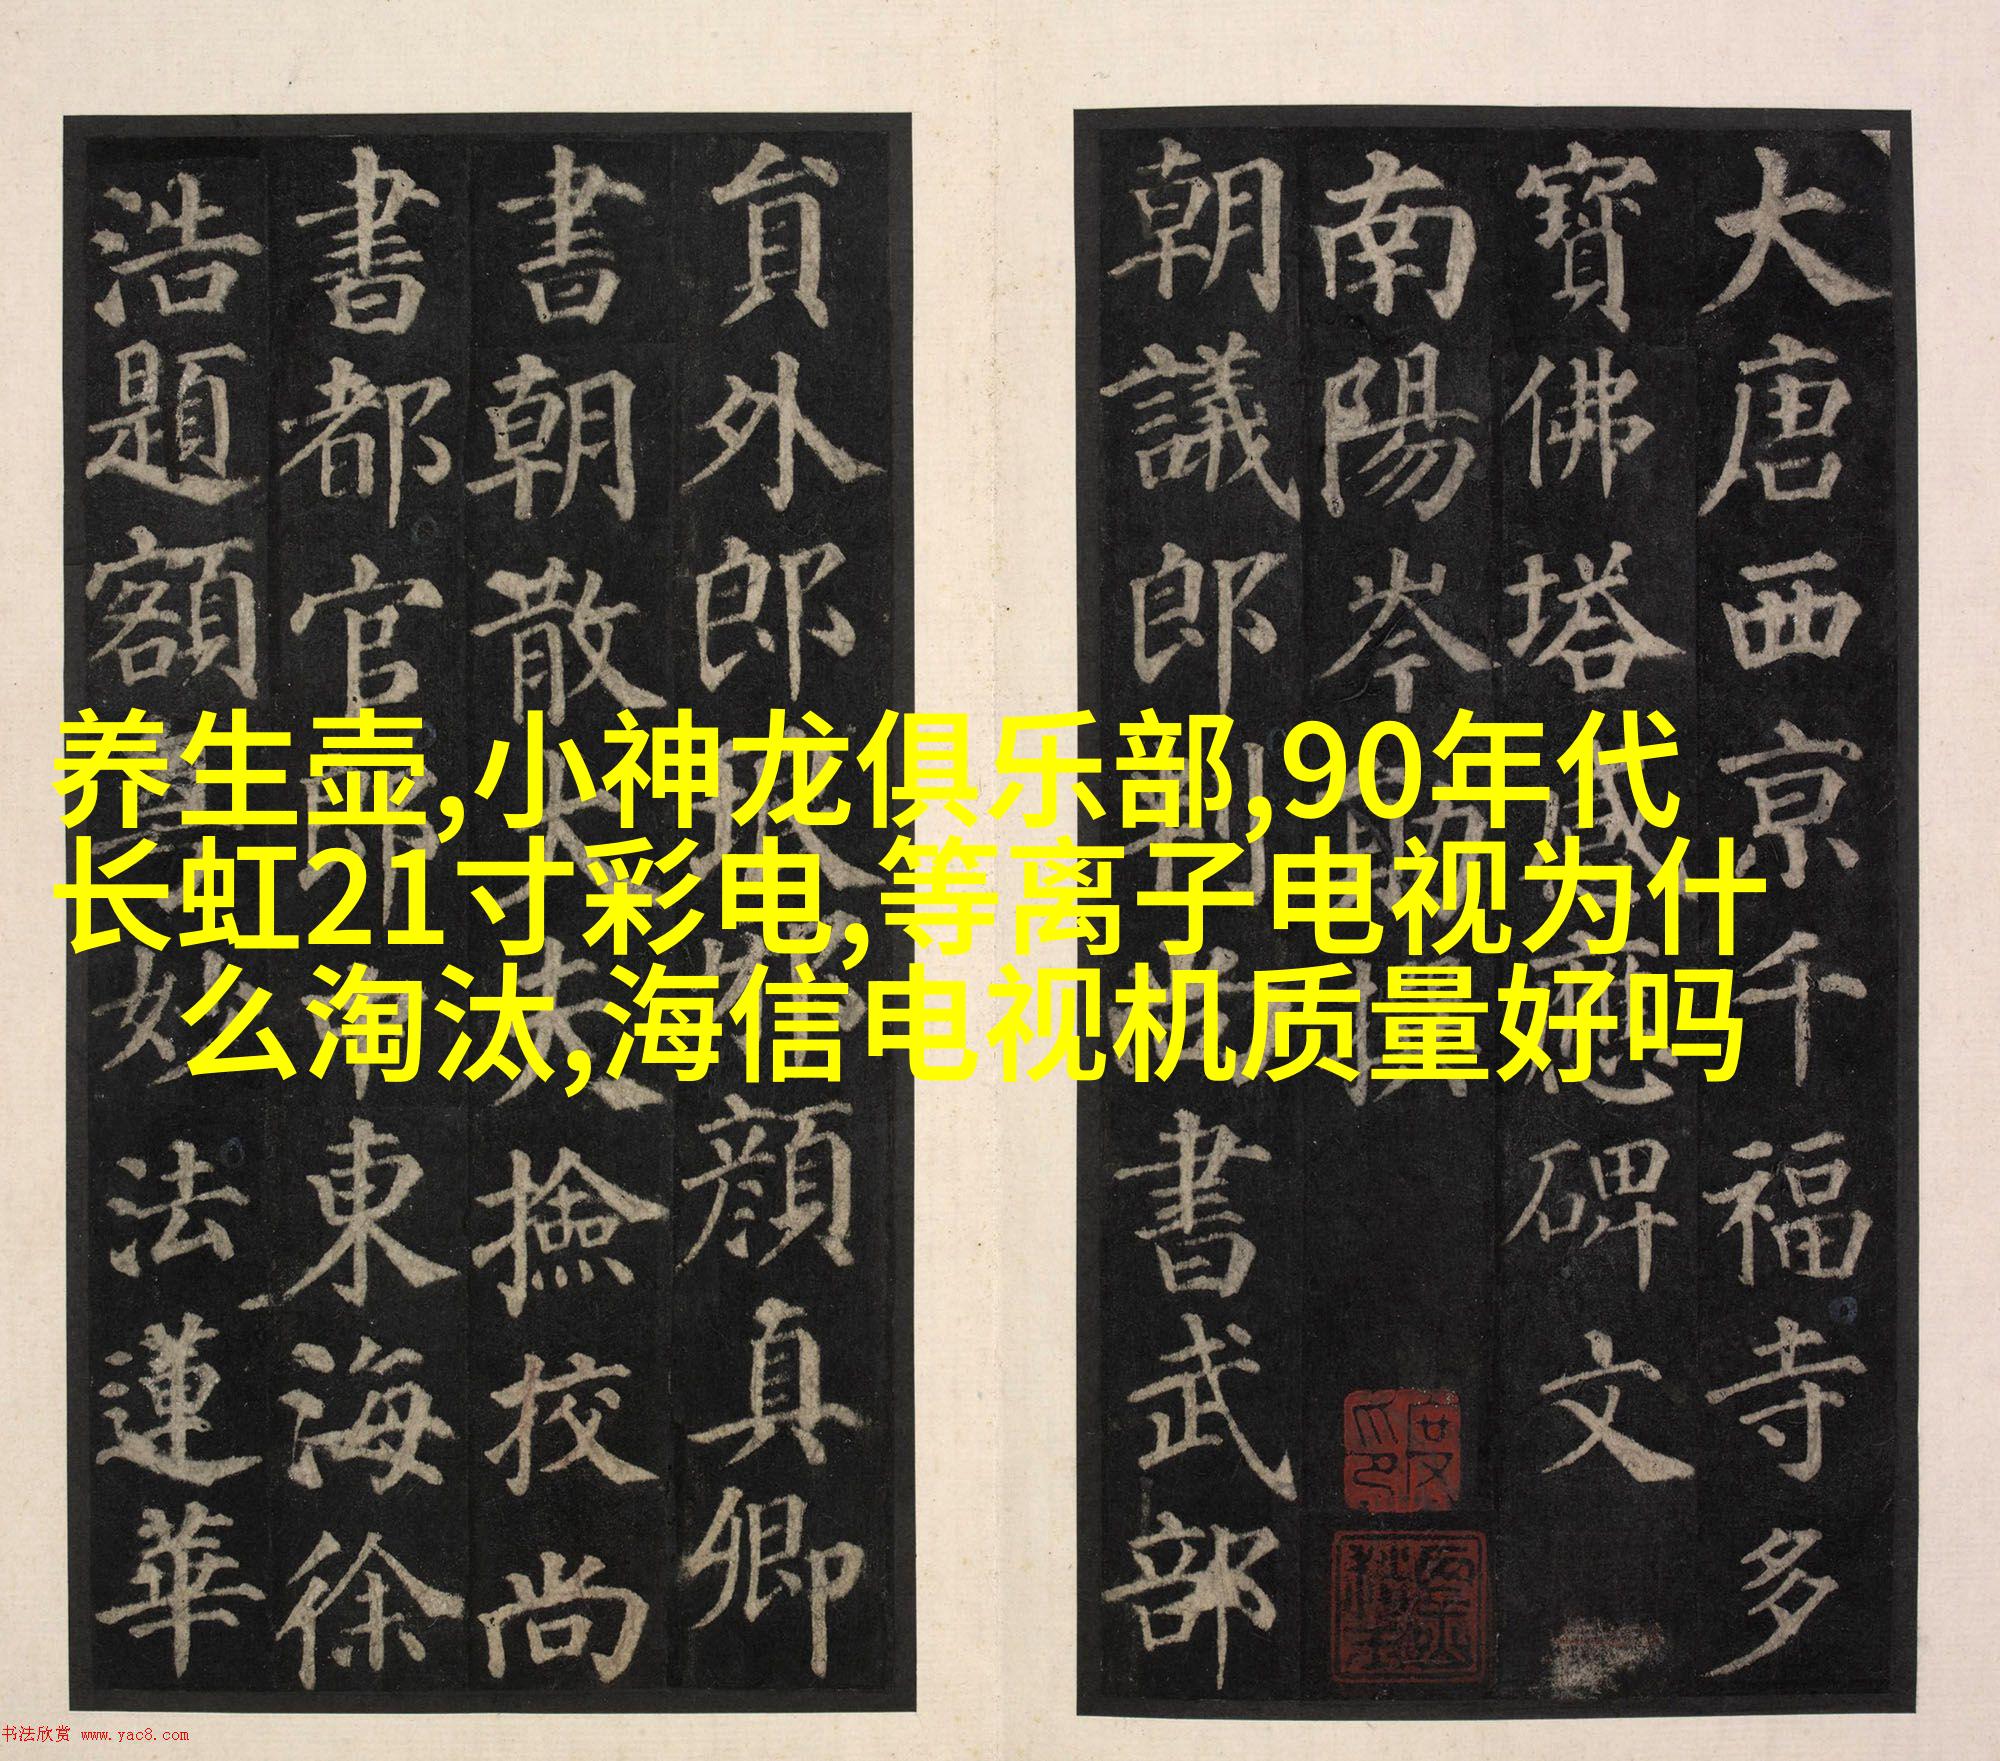 养生壶,小神龙俱乐部,90年代
长虹21寸彩电,等离子电视为什
么淘汰,海信电视机质量好吗
大唐西京千福寺多
寶佛塔感應碑文
南陽岑勛撰
朝議郎判尚書武部
員外郎琅邪顏真卿
書朝散大夫撿挍尚
書都官郎中東海徐
浩題額妙法蓮華
书法欣赏 www.yac8.com